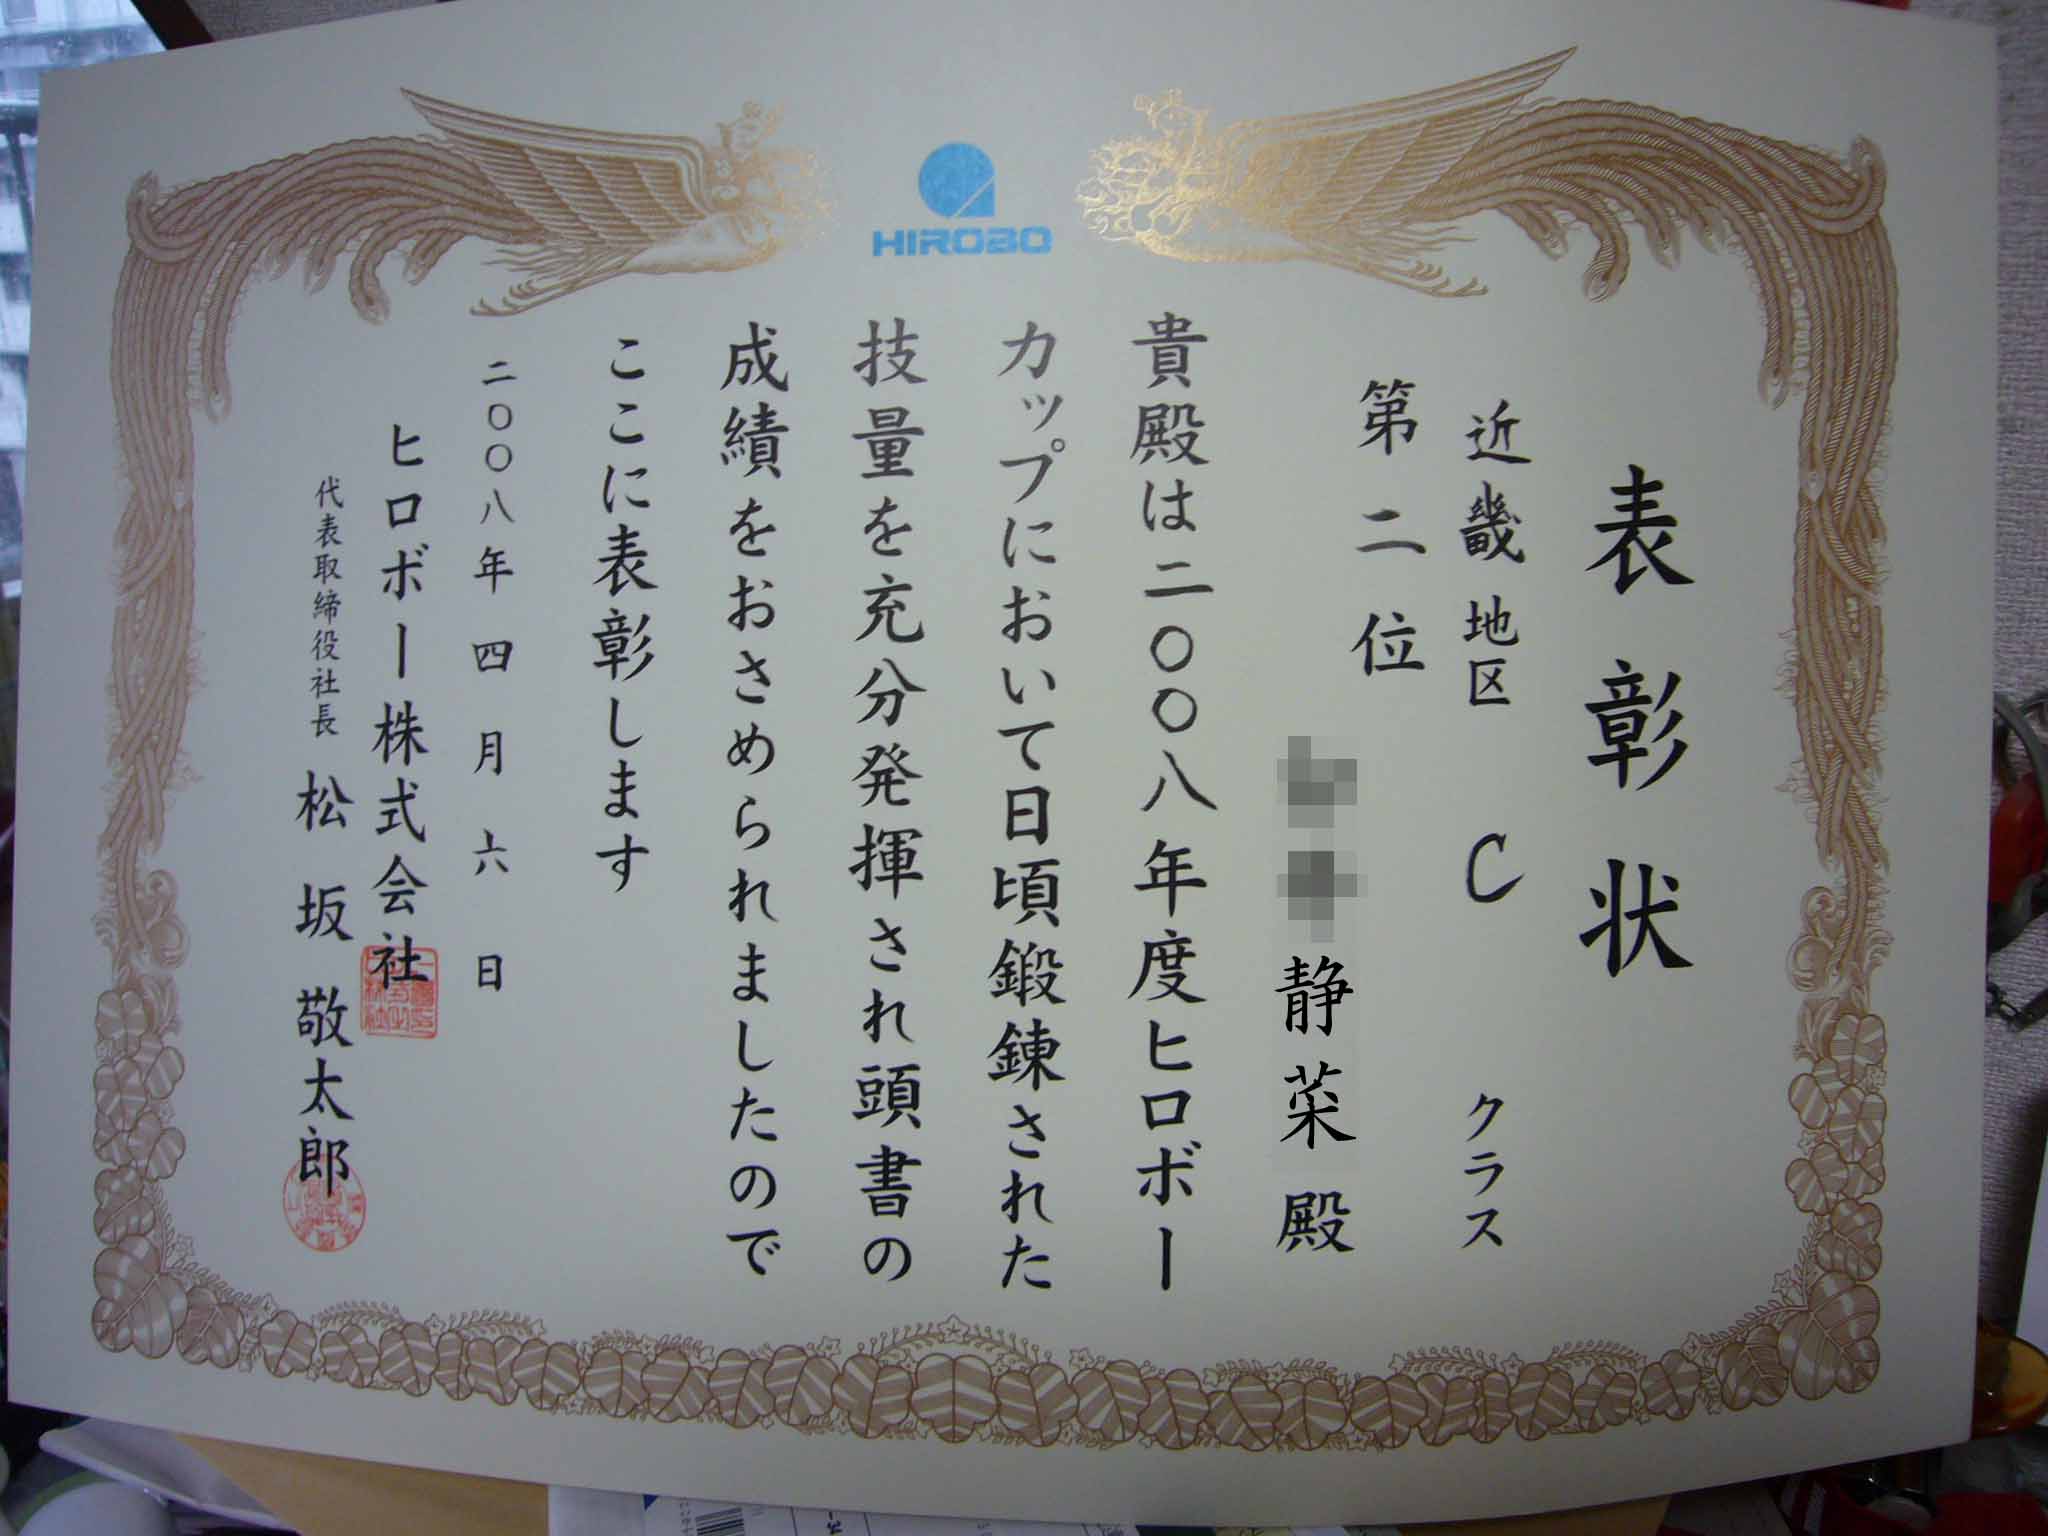 HIROBO
表彰状
近畿地区 C クラス
第二位
静菜 殿
貴殿は二〇〇八年度ヒロボー
カップにおいて日頃鍛錬された
技量を充分発揮され頭書の
成績をおさめられましたので
ここに表彰します
二〇〇八年四月六日
ヒロボー株式会社
代表取締役社長 松坂敬太郎